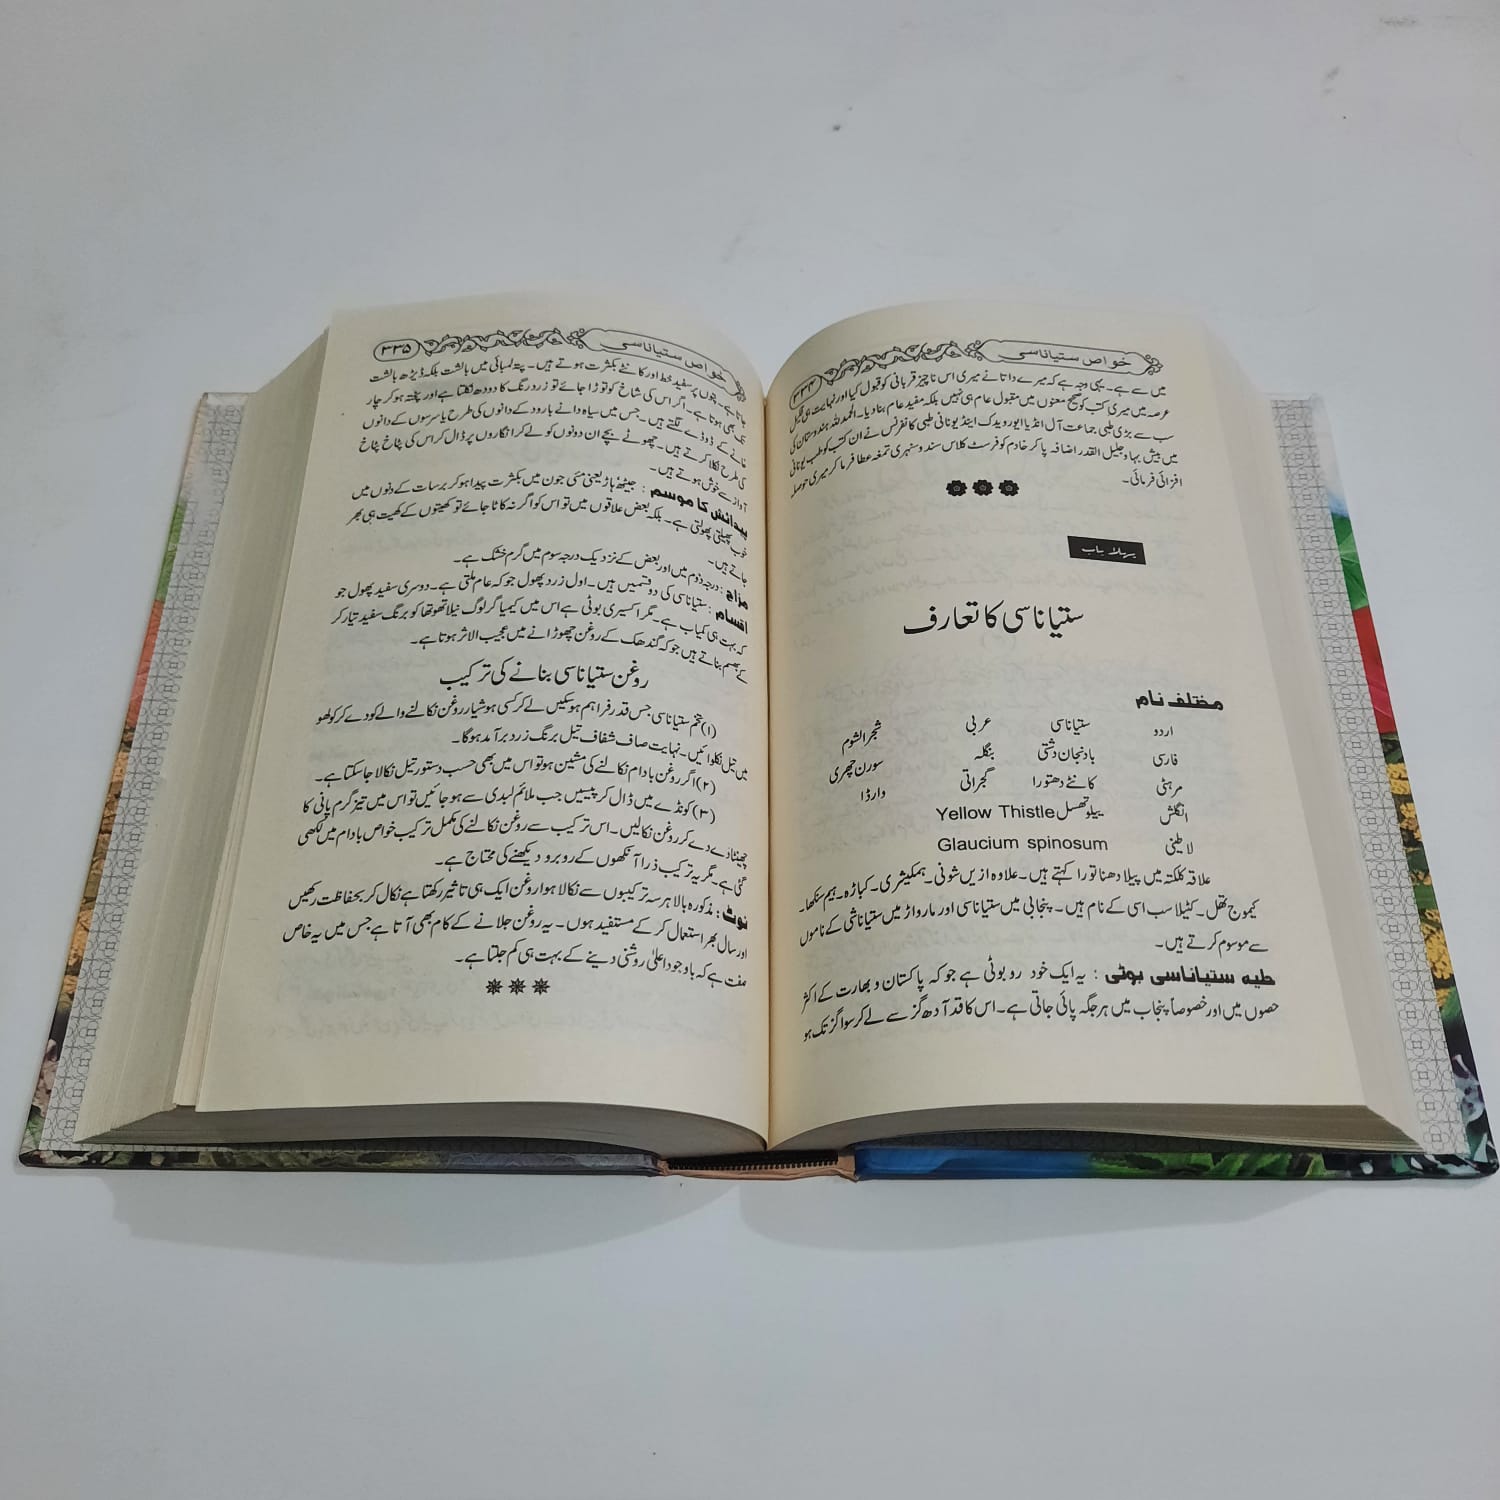 خواص ستیاناسی
۳۳۴
میں سے ہے۔ یہی وجہ ہے کہ میرے داتا نے میری اس ناچیز قربانی کو قبول کیا اور نہایت ہی قلیل
عرصہ میں میری کتب کو صحیح معنوں میں مقبول عام ہی نہیں بلکہ مفید عام بنا دیا۔ الحمد للہ ہندوستان کی
سب سے بڑی طبی جماعت آل انڈیا ایورویدک اینڈ یونانی طبی کانفرنس نے ان کتب کو طب یونانی
میں بیش بہا و جلیل القدر اضافہ پا کر خادم کو فرسٹ کلاس سند و سنہری تمغہ عطا فرما کر میری حوصلہ
افزائی فرمائی۔
پہلا باب
ستیاناسی کا تعارف
مختلف نام
اردو ستیاناسی عربی شجر الشوم
فارسی بادنجان دشتی بنگلہ سورن چھری
مرہٹی کانٹے دھتورا گجراتی وارڈا
انگلش ییلو تھسل Yellow Thistle
لاطینی Glaucium spinosum
علاقہ کلکتہ میں پیلا دھناتورا کہتے ہیں۔ علاوہ ازیں شونی۔ ہمکیشری۔ کباڑہ۔ ہیم سنکھا۔
کیموج تھل۔ کٹیلا سب اسی کے نام ہیں۔ پنجابی میں ستیاناسی اور مارواڑ میں ستیاناشی کے ناموں
سے موسوم کرتے ہیں۔
حلیہ ستیاناسی بوٹی : یہ ایک خود رو بوٹی ہے جو کہ پاکستان و بھارت کے اکثر
حصوں میں اور خصوصاً پنجاب میں ہر جگہ پائی جاتی ہے۔ اس کا قد آدھ گز سے لے کر سوا گز تک ہو
خواص ستیاناسی
۳۳۵
جاتا ہے۔ پتوں پر سفید خط اور کانٹے بکثرت ہوتے ہیں۔ پتہ لمبائی میں بالشت بلکہ ڈیڑھ بالشت
تک بھی ہوتا ہے۔ اگر اس کی شاخ کو توڑا جائے تو زرد رنگ کا دودھ نکلتا ہے اور پختہ ہو کر چار
خانے کے ڈوڈے لگتے ہیں۔ جس میں سیاہ دانے بارود کے دانوں کی طرح یا سرسوں کے دانوں
کی طرح نکلا کرتے ہیں۔ چھوٹے بچے ان دونوں کو لے کر انگاروں پر ڈال کر اس کی پٹاخ پٹاخ
آواز سے خوش ہوتے ہیں۔
پیدائش کا موسم : جیٹھ ہاڑ یعنی مئی جون میں بکثرت پیدا ہو کر برسات کے دنوں میں
خوب پھیلتی پھولتی ہے۔ بلکہ بعض علاقوں میں تو اس کو اگر نہ کاٹا جائے تو کھیتوں کے کھیت ہی بھر
جاتے ہیں۔
مزاج : درجہ دوم میں اور بعض کے نزدیک درجہ سوم میں گرم خشک ہے۔
اقسام : ستیاناسی کی دو قسمیں ہیں۔ اول زرد پھول جو کہ عام ملتی ہے۔ دوسری سفید پھول جو
کہ بہت ہی کمیاب ہے۔ مگر اکسیری بوٹی ہے اس میں کیمیا گر لوگ نیلا تھوتھا کو برنگ سفید تیار کر
کے بھسم بناتے ہیں جو کہ گندھک کے روغن چھوڑانے میں عجیب الاثر ہوتا ہے۔
روغن ستیاناسی بنانے کی ترکیب
(۱) تخم ستیاناسی جس قدر فراہم ہو سکیں لے کر کسی ہوشیار روغن نکالنے والے کو دے کر کولھو
میں تیل نکلوائیں۔ نہایت صاف شفاف تیل برنگ زرد برآمد ہوگا۔
(۲) اگر روغن بادام نکالنے کی مشین ہو تو اس میں بھی حسب دستور تیل نکالا جا سکتا ہے۔
(۳) کونڈے میں ڈال کر پیسیں جب ملائم لبدی سے ہو جائیں تو اس میں تیز گرم پانی کا
چھینٹا دے دے کر روغن نکالیں۔ اس ترکیب سے روغن نکالنے کی مکمل ترکیب خواص بادام میں لکھی
گئی ہے۔ مگر یہ ترکیب ذرا آنکھوں کے روبرو دیکھنے کی محتاج ہے۔
نوٹ : مذکورہ بالا ہر سہ ترکیبوں سے نکالا ہوا روغن ایک ہی تاثیر رکھتا ہے نکال کر بحفاظت رکھیں
اور سال بھر استعمال کر کے مستفید ہوں۔ یہ روغن جلانے کے کام بھی آتا ہے جس میں یہ خاص
صفت ہے کہ باوجود اعلیٰ روشنی دینے کے بہت ہی کم جلتا ہے۔